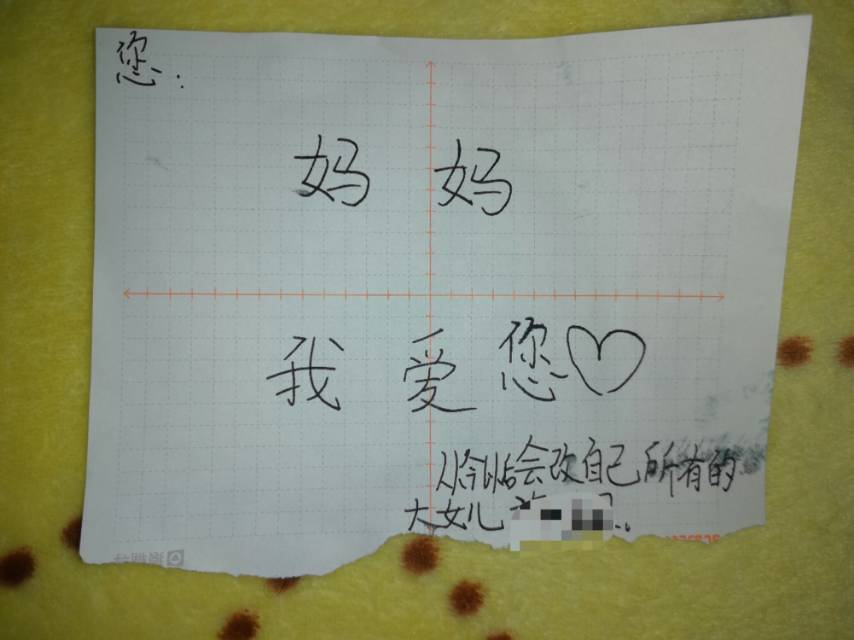 您:
妈妈
我爱您♡
从今以后会改自己所有的
大女儿